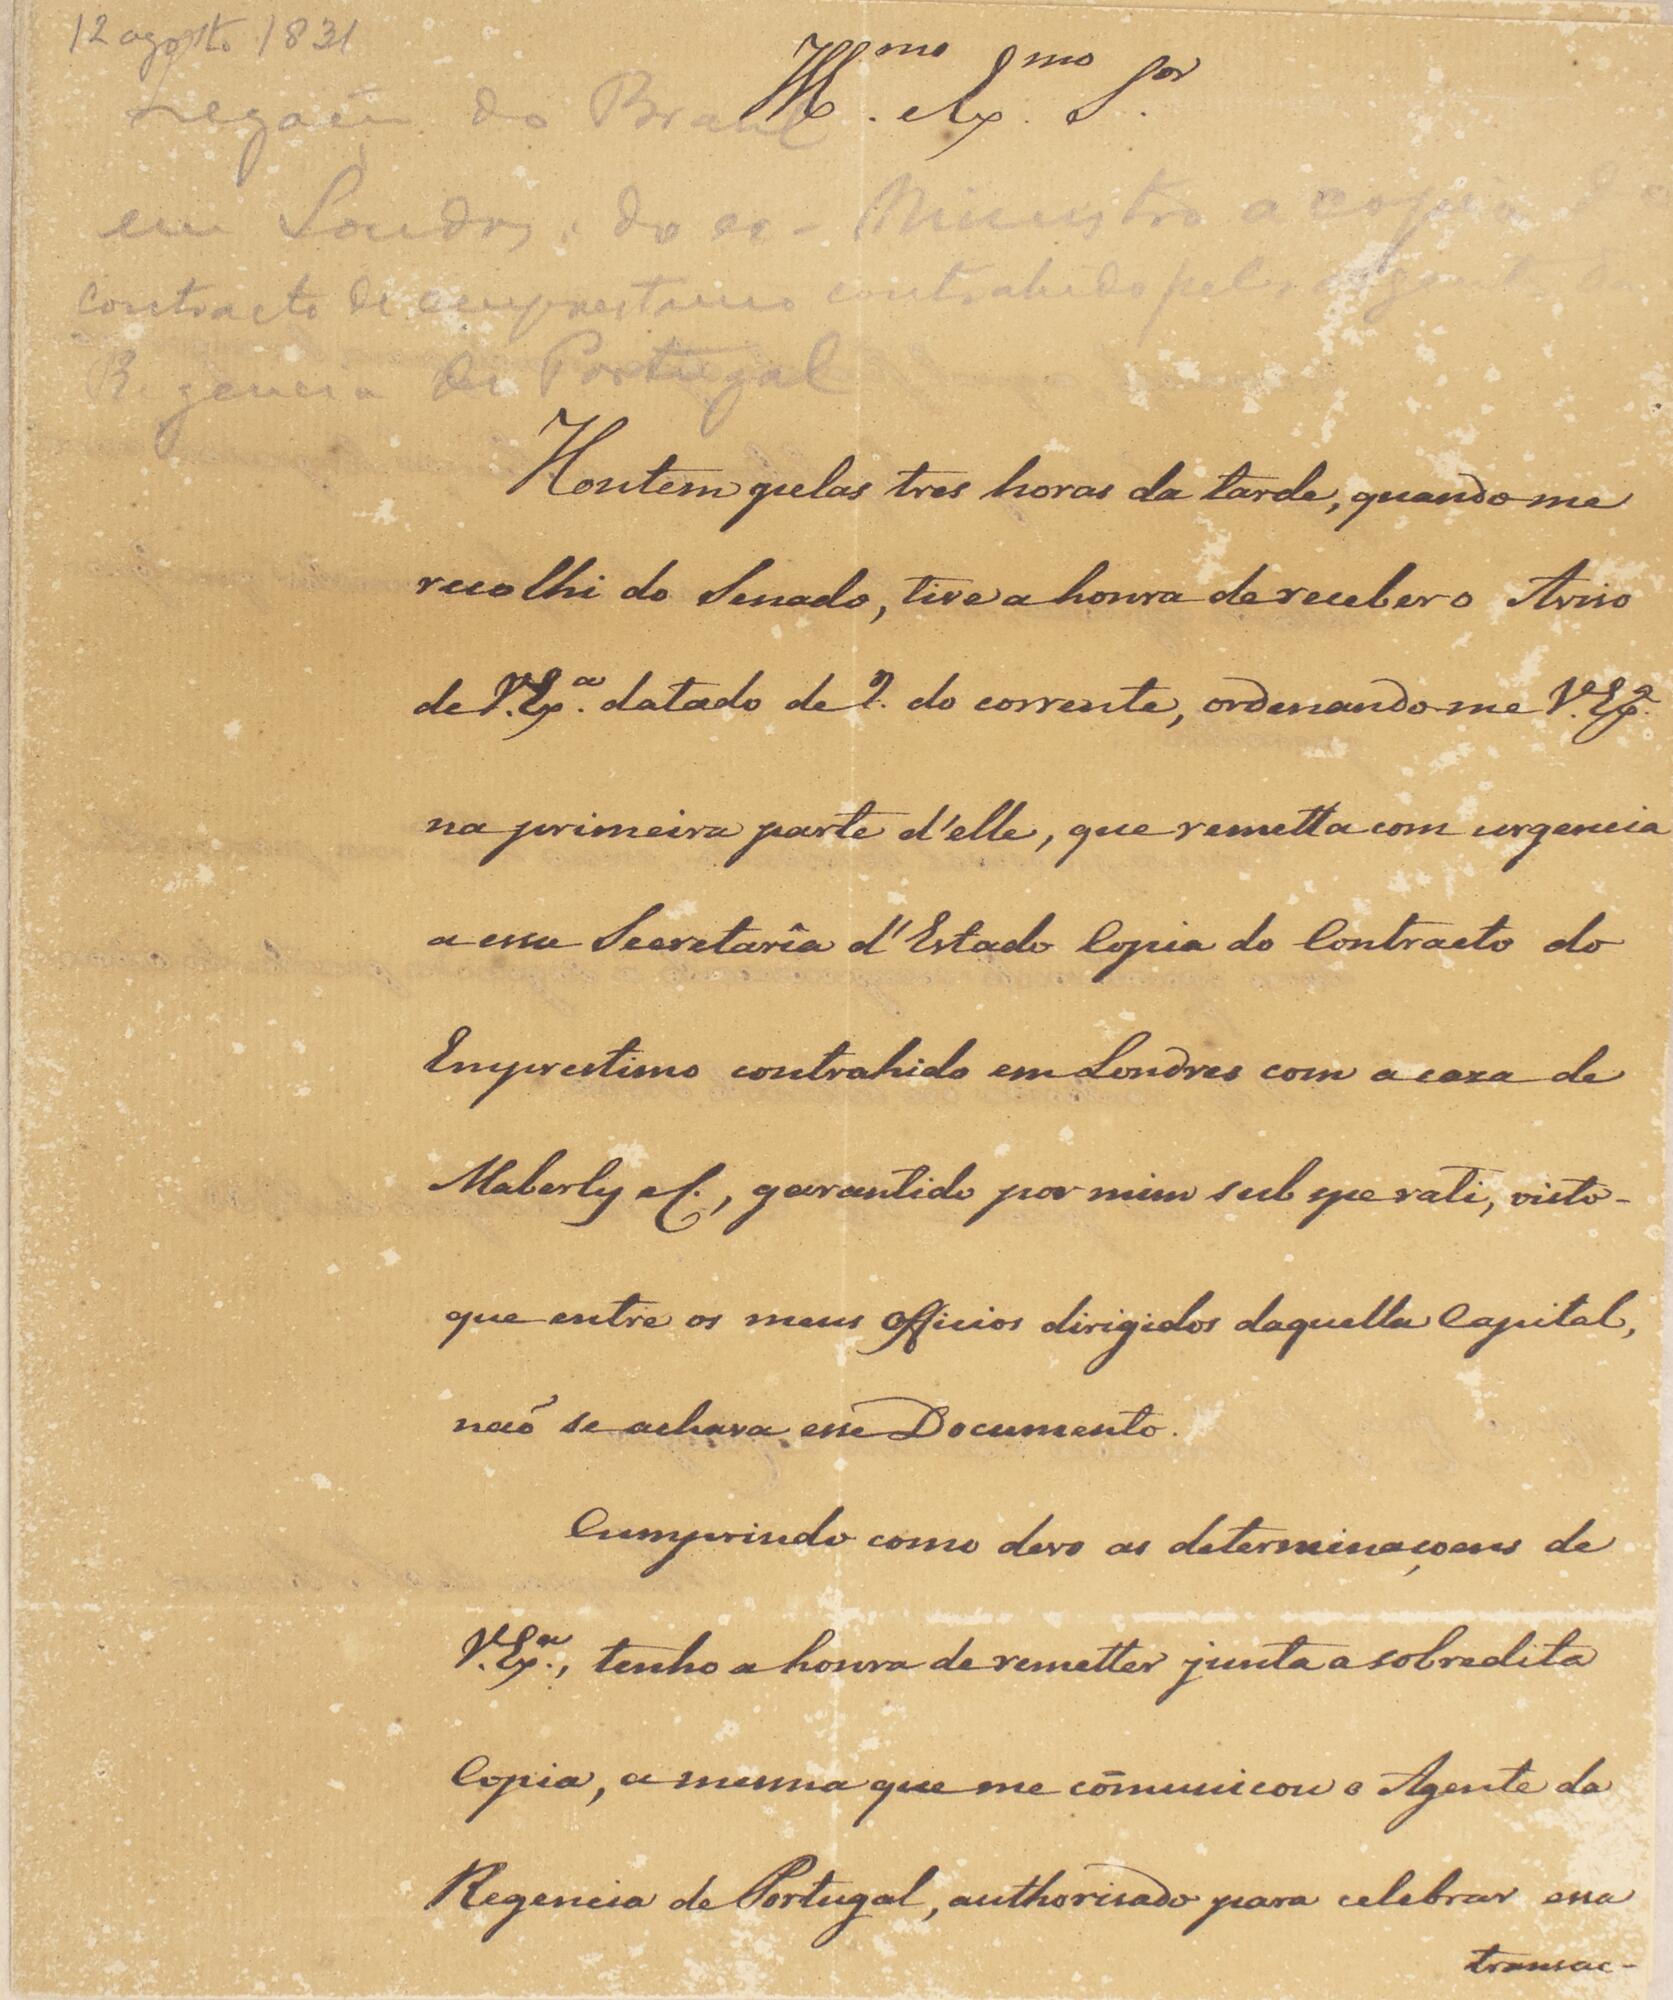 12 agosto 1831
Ill.mo e Ex.mo S.or
Legação do Brasil
em Londres, do ex-Ministro a copia do
contracto de emprestimo contrahido pelo agente da
Regencia de Portugal
Hontem pelas tres horas da tarde, quando me
recolhi do Senado, tive a honra de receber o Aviso
de V. Ex.a datado de 9. do corrente, ordenando-me V. Ex.a
na primeira parte d'elle, que remetta com urgencia
a essa Secretaría d'Estado Copia do Contracto do
Emprestimo contrahido em Londres com a caza de
Maberly e C., garantido por mim sub spe rati, visto-
que entre os meus Officios dirigidos daquella Capital,
naõ se achava esse Documento.
Cumprindo como devo as determinaçoens de
V. Ex.a, tenho a honra de remetter junta a sobredita
Copia, a mesma que me cōmunicou o Agente da
Regencia de Portugal, authorisado para celebrar essa
transac-